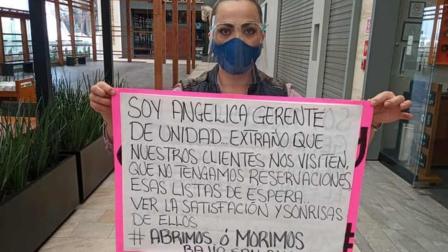 SOY ANGELICA GERENTE
DE UNIDAD... EXTRAÑO QUE
NUESTROS CLIENTES NOS VISITEN,
QUE NO TENGAMOS RESERVACIONES
ESAS LISTAS DE ESPERA...
VER LA SATISFACCIÓN Y SONRISAS
DE ELLOS.
# ABRIMOS Ó MORIMOS